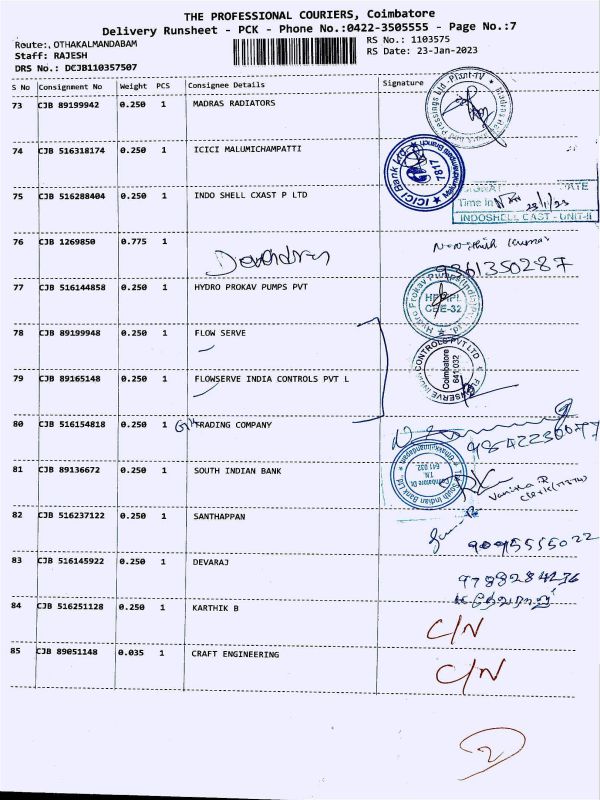 THE PROFESSIONAL COURIERS, Coimbatore
Delivery Runsheet - PCK - Phone No.:0422-3505555 - Page No.:7
Route:, OTHAKALMANDABAM RS No.: 1103575
Staff: RAJESH RS Date: 23-Jan-2023
DRS No.: DCJB110357507
S No Consignment No Weight PCS Consignee Details Signature
73 CJB 89199942 0.250 1 MADRAS RADIATORS
74 CJB 516318174 0.250 1 ICICI MALUMICHAMPATTI
ICICI Bank Ltd. 7817
75 CJB 516288404 0.250 1 INDO SHELL CXAST P LTD
Time In 23/1/23
INDOSHELL CAST - UNIT-II
76 CJB 1269850 0.775 1 Devendran
Kumar
9361350287
77 CJB 516144858 0.250 1 HYDRO PROKAV PUMPS PVT
CBE-32
78 CJB 89199948 0.250 1 FLOW SERVE
79 CJB 89165148 0.250 1 FLOWSERVE INDIA CONTROLS PVT L
Coimbatore
641 032
80 CJB 516154818 0.250 1 TRADING COMPANY
9842230077
81 CJB 89136672 0.250 1 SOUTH INDIAN BANK
82 CJB 516237122 0.250 1 SANTHAPPAN
9095555022
83 CJB 516145922 0.250 1 DEVARAJ
9788284236
84 CJB 516251128 0.250 1 KARTHIK B
C/N
85 CJB 89051148 0.035 1 CRAFT ENGINEERING
C/N
2